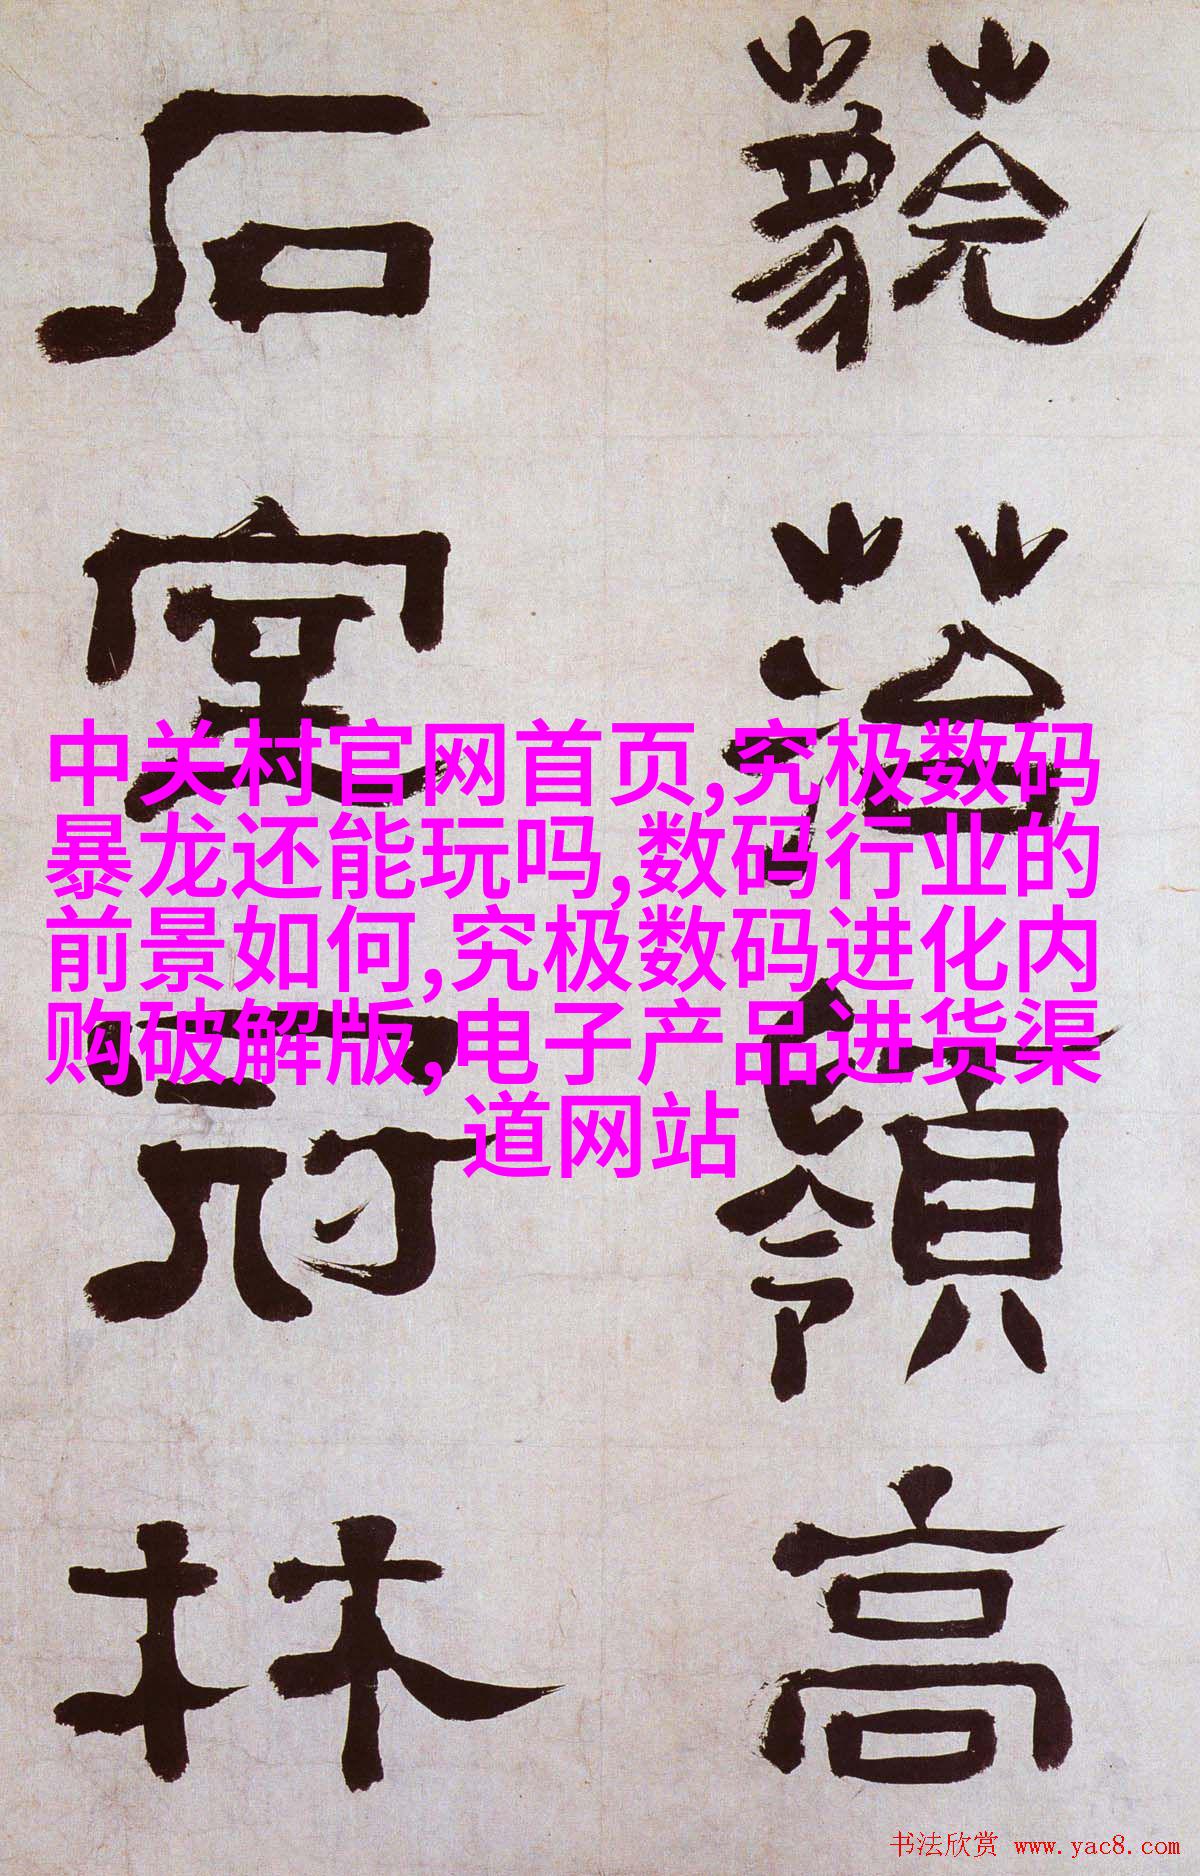 落嶺高
石冠林
中关村官网首页,究极数码
暴龙还能玩吗,数码行业的
前景如何,究极数码进化内
购破解版,电子产品进货渠
道网站
书法欣赏 www.yac8.com